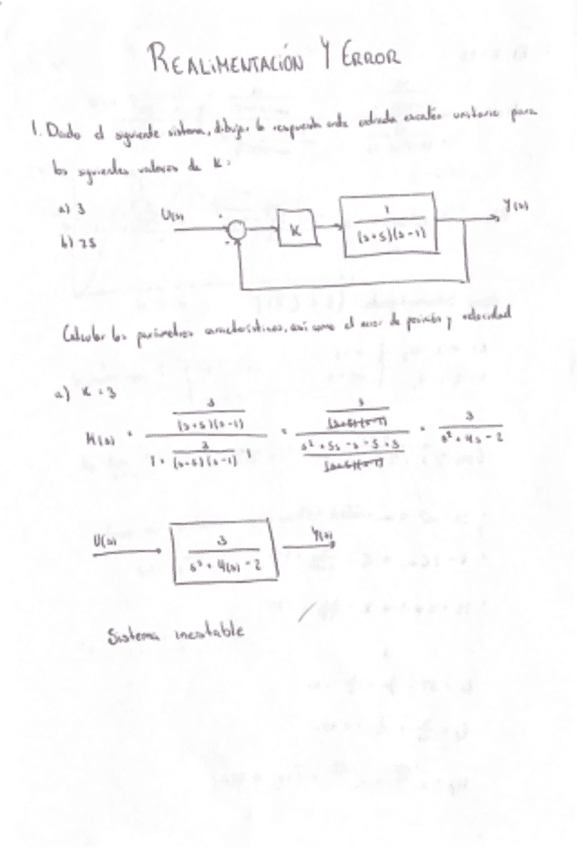 REALIMENTACIÓN Y ERROR
1. Dado el siguiente sistema, dibujar la respuesta ante entrada escalón unitario para
los siguientes valores de K:
a) 3
b) 75
U(s) K 1 / (s+5)(s-1) Y(s)
Calcular los parámetros característicos, así como el error de posición y velocidad
a) K = 3
H(s) = 3/((s+5)(s-1)) / (1 + 3/((s+5)(s-1)) · 1) = 3/((s+5)(s-1)) / ((s² + 5s - s - 5 + 3)/((s+5)(s-1))) = 3/(s² + 4s - 2)
U(s) 3 / (s² + 4(s) - 2) Y(s)
Sistema inestable